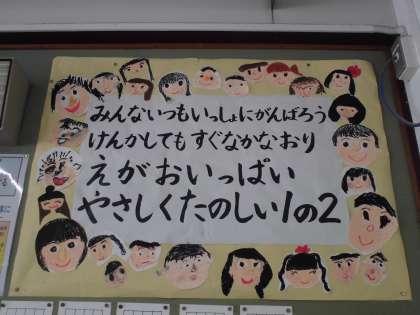 みんないつもいっしょにがんばろう
けんかしても すぐなかなおり
えがおいっぱい
やさしくたのしい1の2